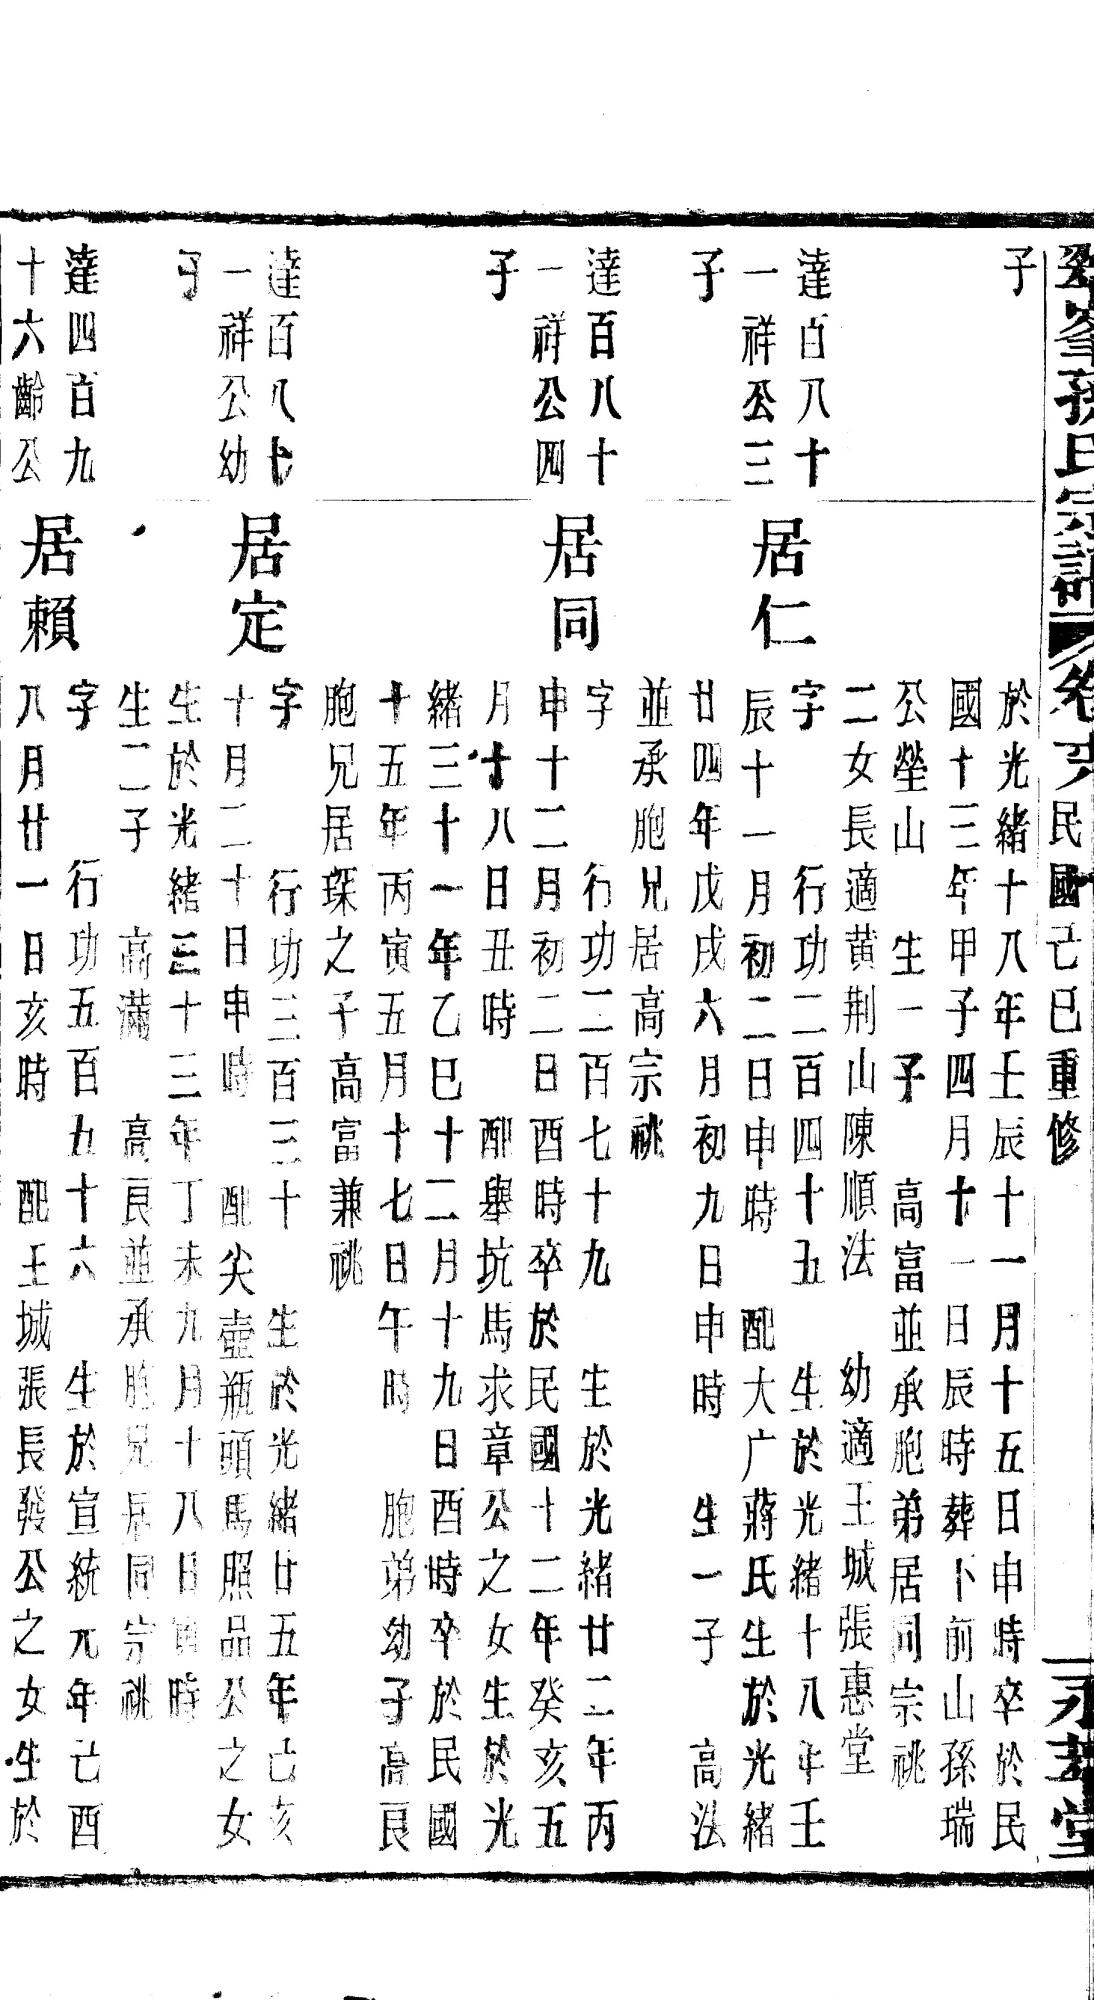 孫氏宗譜 卷 民國己巳重修
子
於光緒十八年壬辰十一月十五日申時卒於民
國十三年甲子四月十一日辰時葬卜前山孫瑞
公塋山 生一子 高富並承胞弟居同宗祧
二女長適黄荆山陳順法 幼適王城張惠堂
達百八十
一祥公三
子
居仁
字 行功二百四十五 生於光緒十八年壬
辰十一月初二日申時 配大广蔣氏生於光緒
廿四年戊戌六月初九日申時 生一子 高法
並承胞兄居高宗祧
達百八十
一祥公四
子
居同
字 行功二百七十九 生於光緒廿二年丙
申十二月初二日酉時卒於民國十二年癸亥五
月十八日丑時 配舉坑馬求章公之女生於光
緒三十一年乙巳十二月十九日酉時卒於民國
十五年丙寅五月十七日午時 胞弟幼子高良
胞兄居琛之子高富兼祧
達百八十
一祥公幼
子
居定
字 行功三百三十 生於光緒廿五年己亥
十月二十日申時 配尖壺瓶頭馬照品公之女
生於光緒三十三年丁未九月十八日酉時
生二子 高滿 高良並承胞兄居同宗祧
達四百九
十六齡公
居賴
字 行功五百九十六 生於宣統元年己酉
八月廿一日亥時 配王城張長發公之女生於